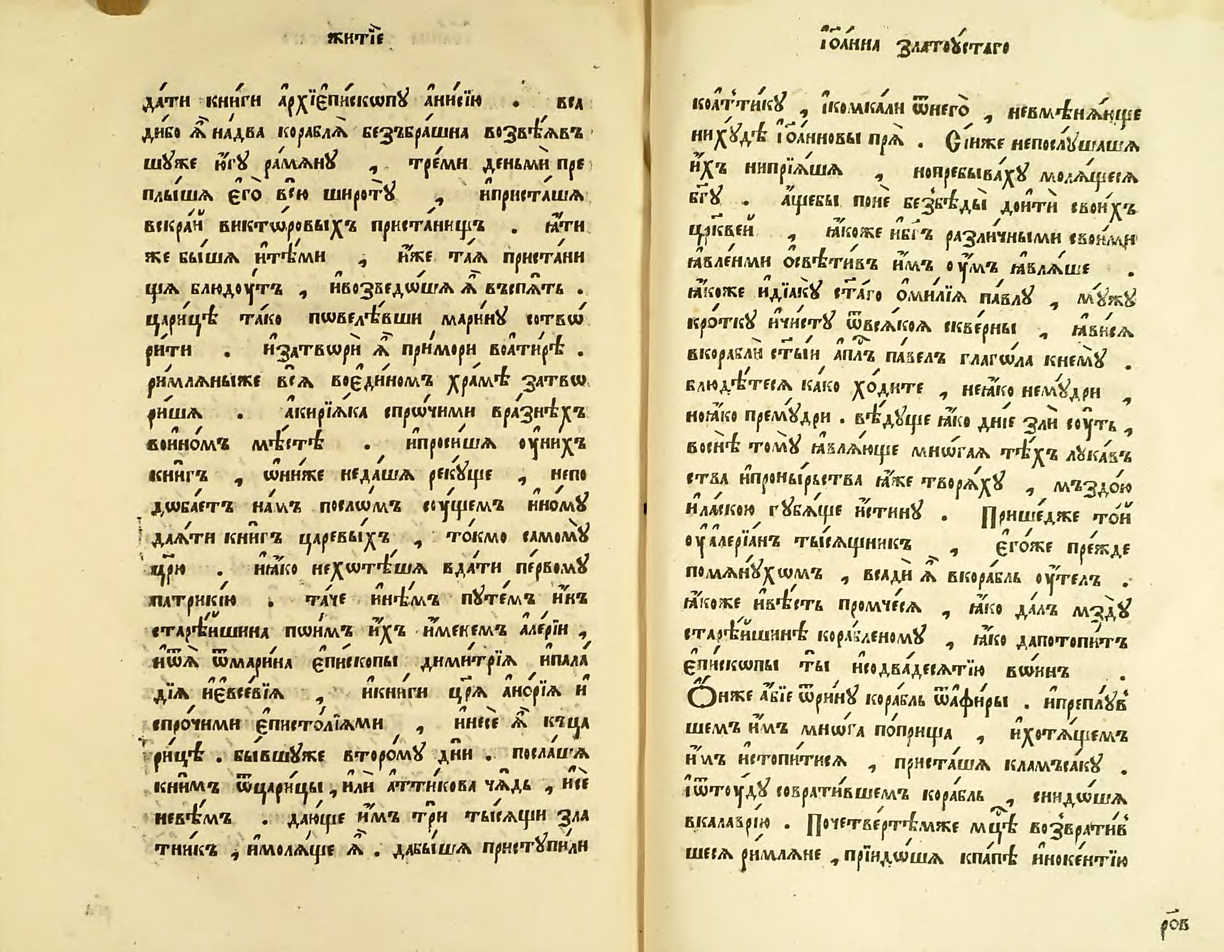 житїе
да́ти кни́ги а҆рхїепи́скопꙋ а҆ни́сїю . вса
ди́бо ѧ҆̀ на́два корабла̀ безъбра́шна возвѣ́ѧвъ
шꙋже ю҆́гꙋ ра́мѧнꙋ , тре́ми деньмѝ пре
плы́шѧ є҆го̀ всю̀ широтꙋ̀ , и҆приста́шѧ
вскра́й викт́ѡровыхъ приста́нищъ . ꙗ҆́ти
же бы́шѧ и҆тѣ́ми , и҆̀же та́ѧ приста́ни
щѧ блюдоу́тъ , и҆возведѡ́шѧ ѧ҆̀ въспѧ́ть .
цари́цѣ та́ко пѡвелѣ́вши мари́нꙋ сотвѡ
ри́ти . и҆затвѡрѝ ѧ҆̀ примо́ри воати́рѣ .
ри́млѧныже всѧ̀ воє҆ди́номъ хра́мѣ затвѡ
ри́шѧ . а҆кирїѧ́ка спрѡ́чими вра́знѣхъ
вои́номъ мѣ́стѣ . и҆проси́шѧ оу҆ни́хъ
кни́гъ , ѡ҆ни́же неда́шѧ рекꙋ́ще , непо
дѡба́етъ на́мъ послѡ́мъ сꙋ́щемъ и҆но́мꙋ
даѧ́ти кни́гъ царе́выхъ , то́кмо самомꙋ̀
цр҃ю . ꙗ҆́ко нехѡтѣ́шѧ вда́ти пе́рвомꙋ
патри́кїю . та́че и҆нѣ́мъ пꙋте́мъ и҆́нъ
старѣ́йшина пѡи́мъ и҆́хъ и҆́менемъ а҆ле́рїи ,
и҆ѿѧ̀ ѿмари́на є҆пи́скопы дими́трїѧ и҆пала́
дїѧ и҆є҆все́вїѧ , и҆кни́ги цр҃ѧ а҆но́рїѧ и҆
спро́чими є҆писто́лїѧми , и҆несѐ ѧ҆̀ къца
ри́цѣ . бы́вшꙋже второ́мꙋ дн҃и . посла́шѧ
кни́мъ ѿцари́цы , и҆лѝ а҆́ттикова чѧ́дь , и҆сѐ
невѣ́мъ . даю́ще и҆́мъ трѝ ты́сѧщи зла
тни́къ , и҆молѧ́ще ѧ҆̀ . дабы́шѧ пристꙋпи́ли
і҆ѡа́нна златоꙋ́стаго
коа҆т́тикꙋ , і҆комка́ли ѿнегѡ̀ , невмѣнѧ́юще
нихꙋдѣ̀ і҆ѡа́нновы прѧ̀ . Сі́иже непослꙋ́шашѧ
и҆́хъ нипрїѧ́шѧ , нопребыва́хꙋ молѧ́щесѧ
бг҃ꙋ . а҆́щебы понѐ безбѣды̀ доитѝ свои́хъ
цр҃кве́й , ꙗ҆́коже и҆бг҃ъ разли́чными свои́ми
ꙗ҆вле́ньми ѡ҆свѣти́въ и҆́мъ оу҆́мъ ꙗ҆влѧ́ше .
ꙗ҆́коже и҆дїа́кꙋ ст҃а́го ѡ҆ми́лїѧ па́влꙋ , мꙋ́жꙋ
кро́ткꙋ и҆чи́стꙋ ѿвсѧ́коѧ скве́рны , ꙗ҆ви́сѧ
вкораблѝ ст҃ы́и а҆пл҃ъ па́велъ глаго́ла кнемꙋ̀ .
блюдѣ́тесѧ ка́ко хо́дите , неꙗ҆́ко немꙋ́дри ,
ноꙗ҆́ко премꙋ́дри . вѣ́дꙋще ꙗ҆́ко дні́е злѝ сꙋ́ть ,
воснѐ томꙋ̀ ꙗ҆влѧ́юще мнѡ́гаѧ тѣ́хъ лꙋка́въ
ства и҆проны́рьства ꙗ҆́же творѧ́хꙋ , мъздо́ю
и҆ла́скою гꙋбѧ́ще и҆́стинꙋ . Прише́дже то́й
оу҆але́рїанъ ты́сѧщникъ , є҆го́же пре́жде
помѧнꙋ́хѡмъ , всадѝ ѧ҆̀ вкора́бль оу҆́телъ .
ꙗ҆́коже и҆вѣ́сть промче́сѧ , ꙗ҆́ко да́лъ мздꙋ̀
старѣ́йшинѣ кора́бленомꙋ , ꙗ҆́ко дапото́питъ
є҆пи́скѡпы ты̀ и҆содвадесѧтїю̀ вѡ́инъ .
Ѻ҆ни́же а҆́бїе ѿри́нꙋ кора́бль ѿафи́ры . и҆преплꙋ́в
шемъ и҆́мъ мнѡ́га по́прища , и҆хотѧ́щемъ
и҆́мъ и҆стопи́тисѧ , приста́шѧ кламъса́кꙋ .
і҆ѿтоу́дꙋ соврати́вшемъ кора́бль , снидо́шѧ
вкала́врїю . Почетве́ртѣмже мц҃ѣ возврати́в
шесѧ ри́млѧне , прїидо́шѧ кпа́пѣ и҆ноке́нтїю
ров